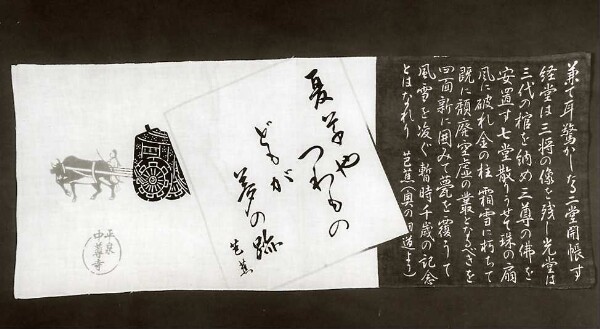 兼て耳驚かしたる二堂開帳す
経堂は三将の像を残し光堂は
三代の棺を納め三尊の佛を
安置す七堂散りうせて珠の扉
風に破れ金の柱霜雪に朽ちて
既に頽廃空虚の叢となるべきを
四面新に囲みて甍を覆うて
風雪を凌ぐ暫時千歳の記念
とはなれり 芭蕉(奥の細道より)
夏草や
つわもの
どもが
夢の跡
芭蕉
平泉
中尊寺